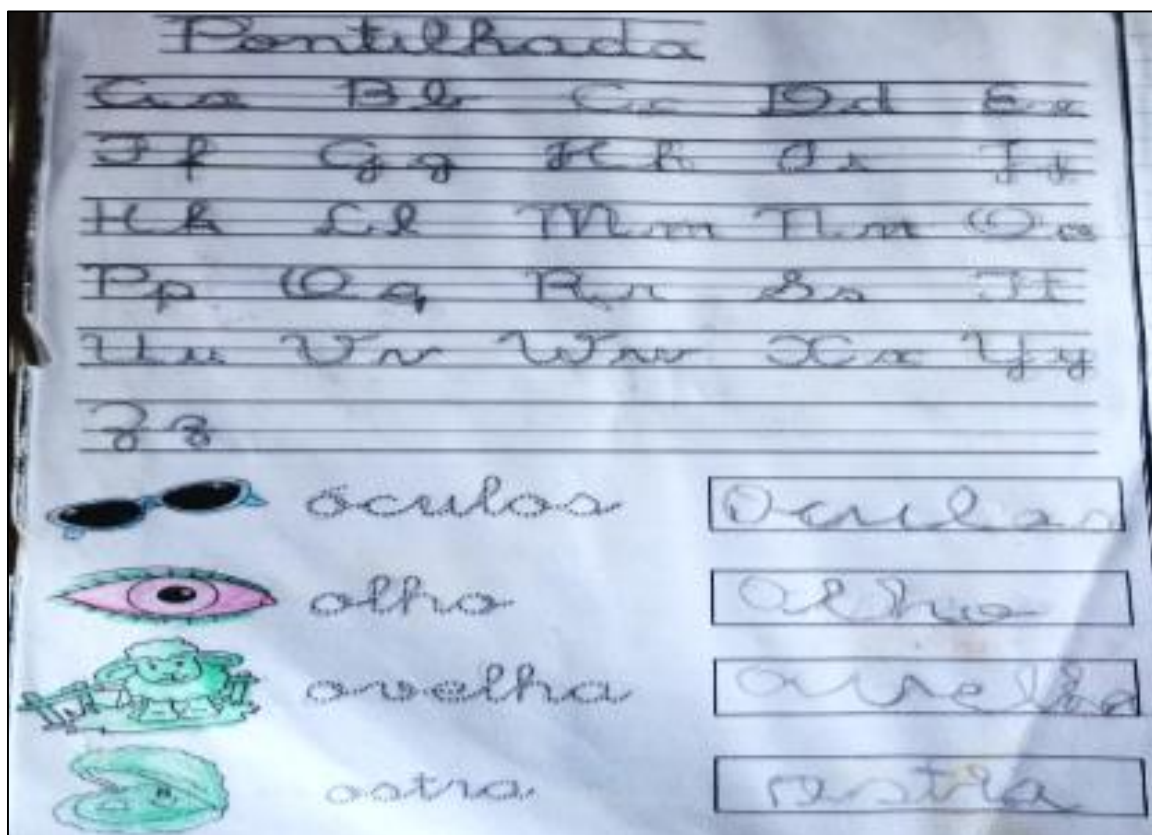 Pontilhada
Aa Bb Cc Dd Ee
Ff Gg Hh Ii Jj
Kk Ll Mm Nn Oo
Pp Qq Rr Ss Tt
Uu Vv Ww Xx Yy
Zz
óculos Oculos
olho Olho
ovelha ovelha
ostra ostra